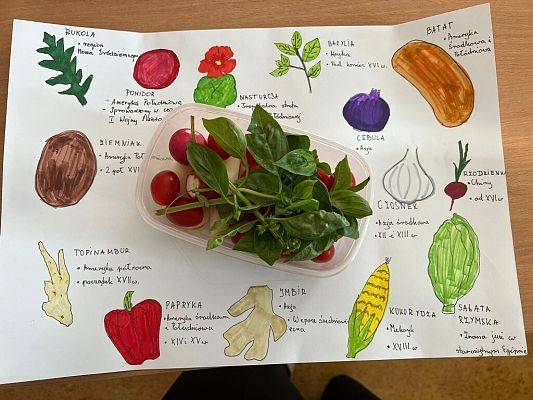 RUKOLA
• region
Morza Śródziemnego
POMIDOR
• Ameryka Południowa
Sprowadzony w
I Wojny
NASTURCJA
BAZYLIA
• Pod koniec XVI w.
BATAT
• Ameryka
Środkowa i
Południowa
CEBULA
• Azja
ZIEMNIAK
• Ameryka
• 2 poł XVI
CZOSNEK
• Azja środkowa
XII i XIII w
• Chiny
• od XVI w
TOPINAMBUR
• Ameryka północna
• początek XVII w.
PAPRYKA
• Ameryka Środkowa
i Południowa
• XIV i XV w
IMBIR
• Azja
• W epoce
KUKURYDZA
• Meksyk
• XVIII w
SAŁATA
RZYMSKA
• Znana już w
starożytnym Egipcie